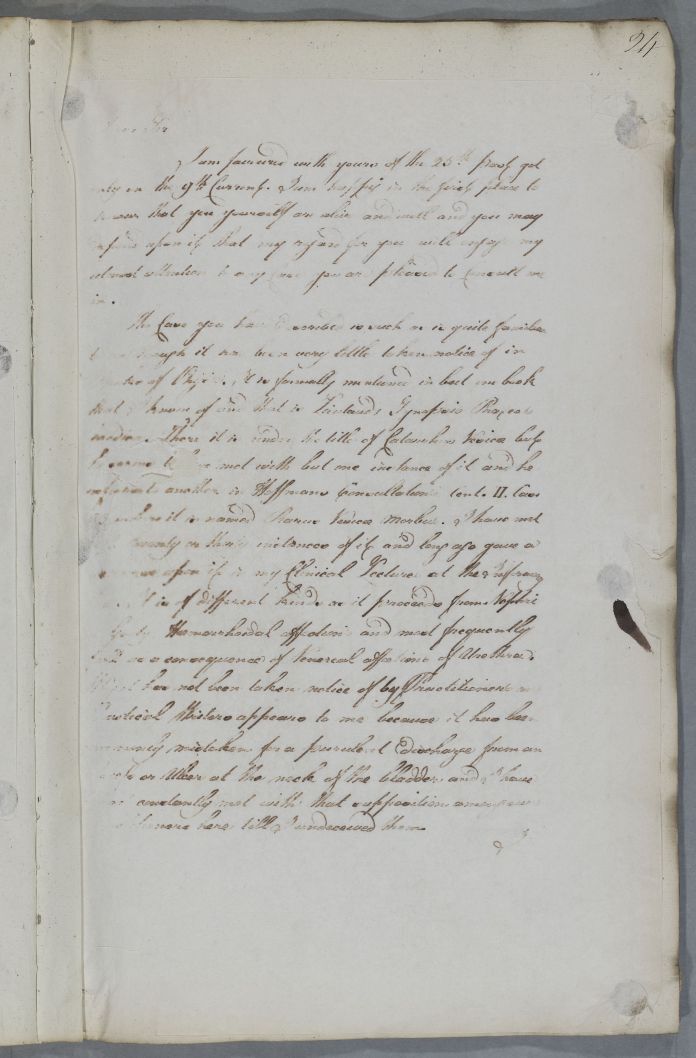 24
Dear Sir
I am favoured with yours of the 25th but got
only on the 9th Current. I am happy in the first place to
know that you yourself are alive and well and you may
depend upon it that my regard for you will engage my
utmost attention to any Case you are pleased to Consult me
in.
The Case you have described is such as is quite familiar
though it has been very little taken notice of in
of Physic. It is formally mentioned in but one book
that I know of and that is Lieutauds Synopsis Praxeos
medicae. There it is under the title of Catarrhus Vesicae but
he seems to have met with but one instance of it and he
refers to another in Hoffmans Consultations Cent. II. Case
where it is named Rarus Vesicae Morbus. I have met
twenty or thirty instances of it and long ago gave a
upon it in my Clinical Lectures at the Infirmary
It is of different kinds as it proceeds from Nephri
Hemorrhoidal affections and most frequently
as a consequence of Venereal affections of Urethra.
it has not been taken notice of by Practitioners or
Practical Writers appears to me because it has been
commonly mistaken for a purulent discharge from an
or Ulcer at the neck of the bladder and I have
constantly met with that supposition among
here till I undeceived them